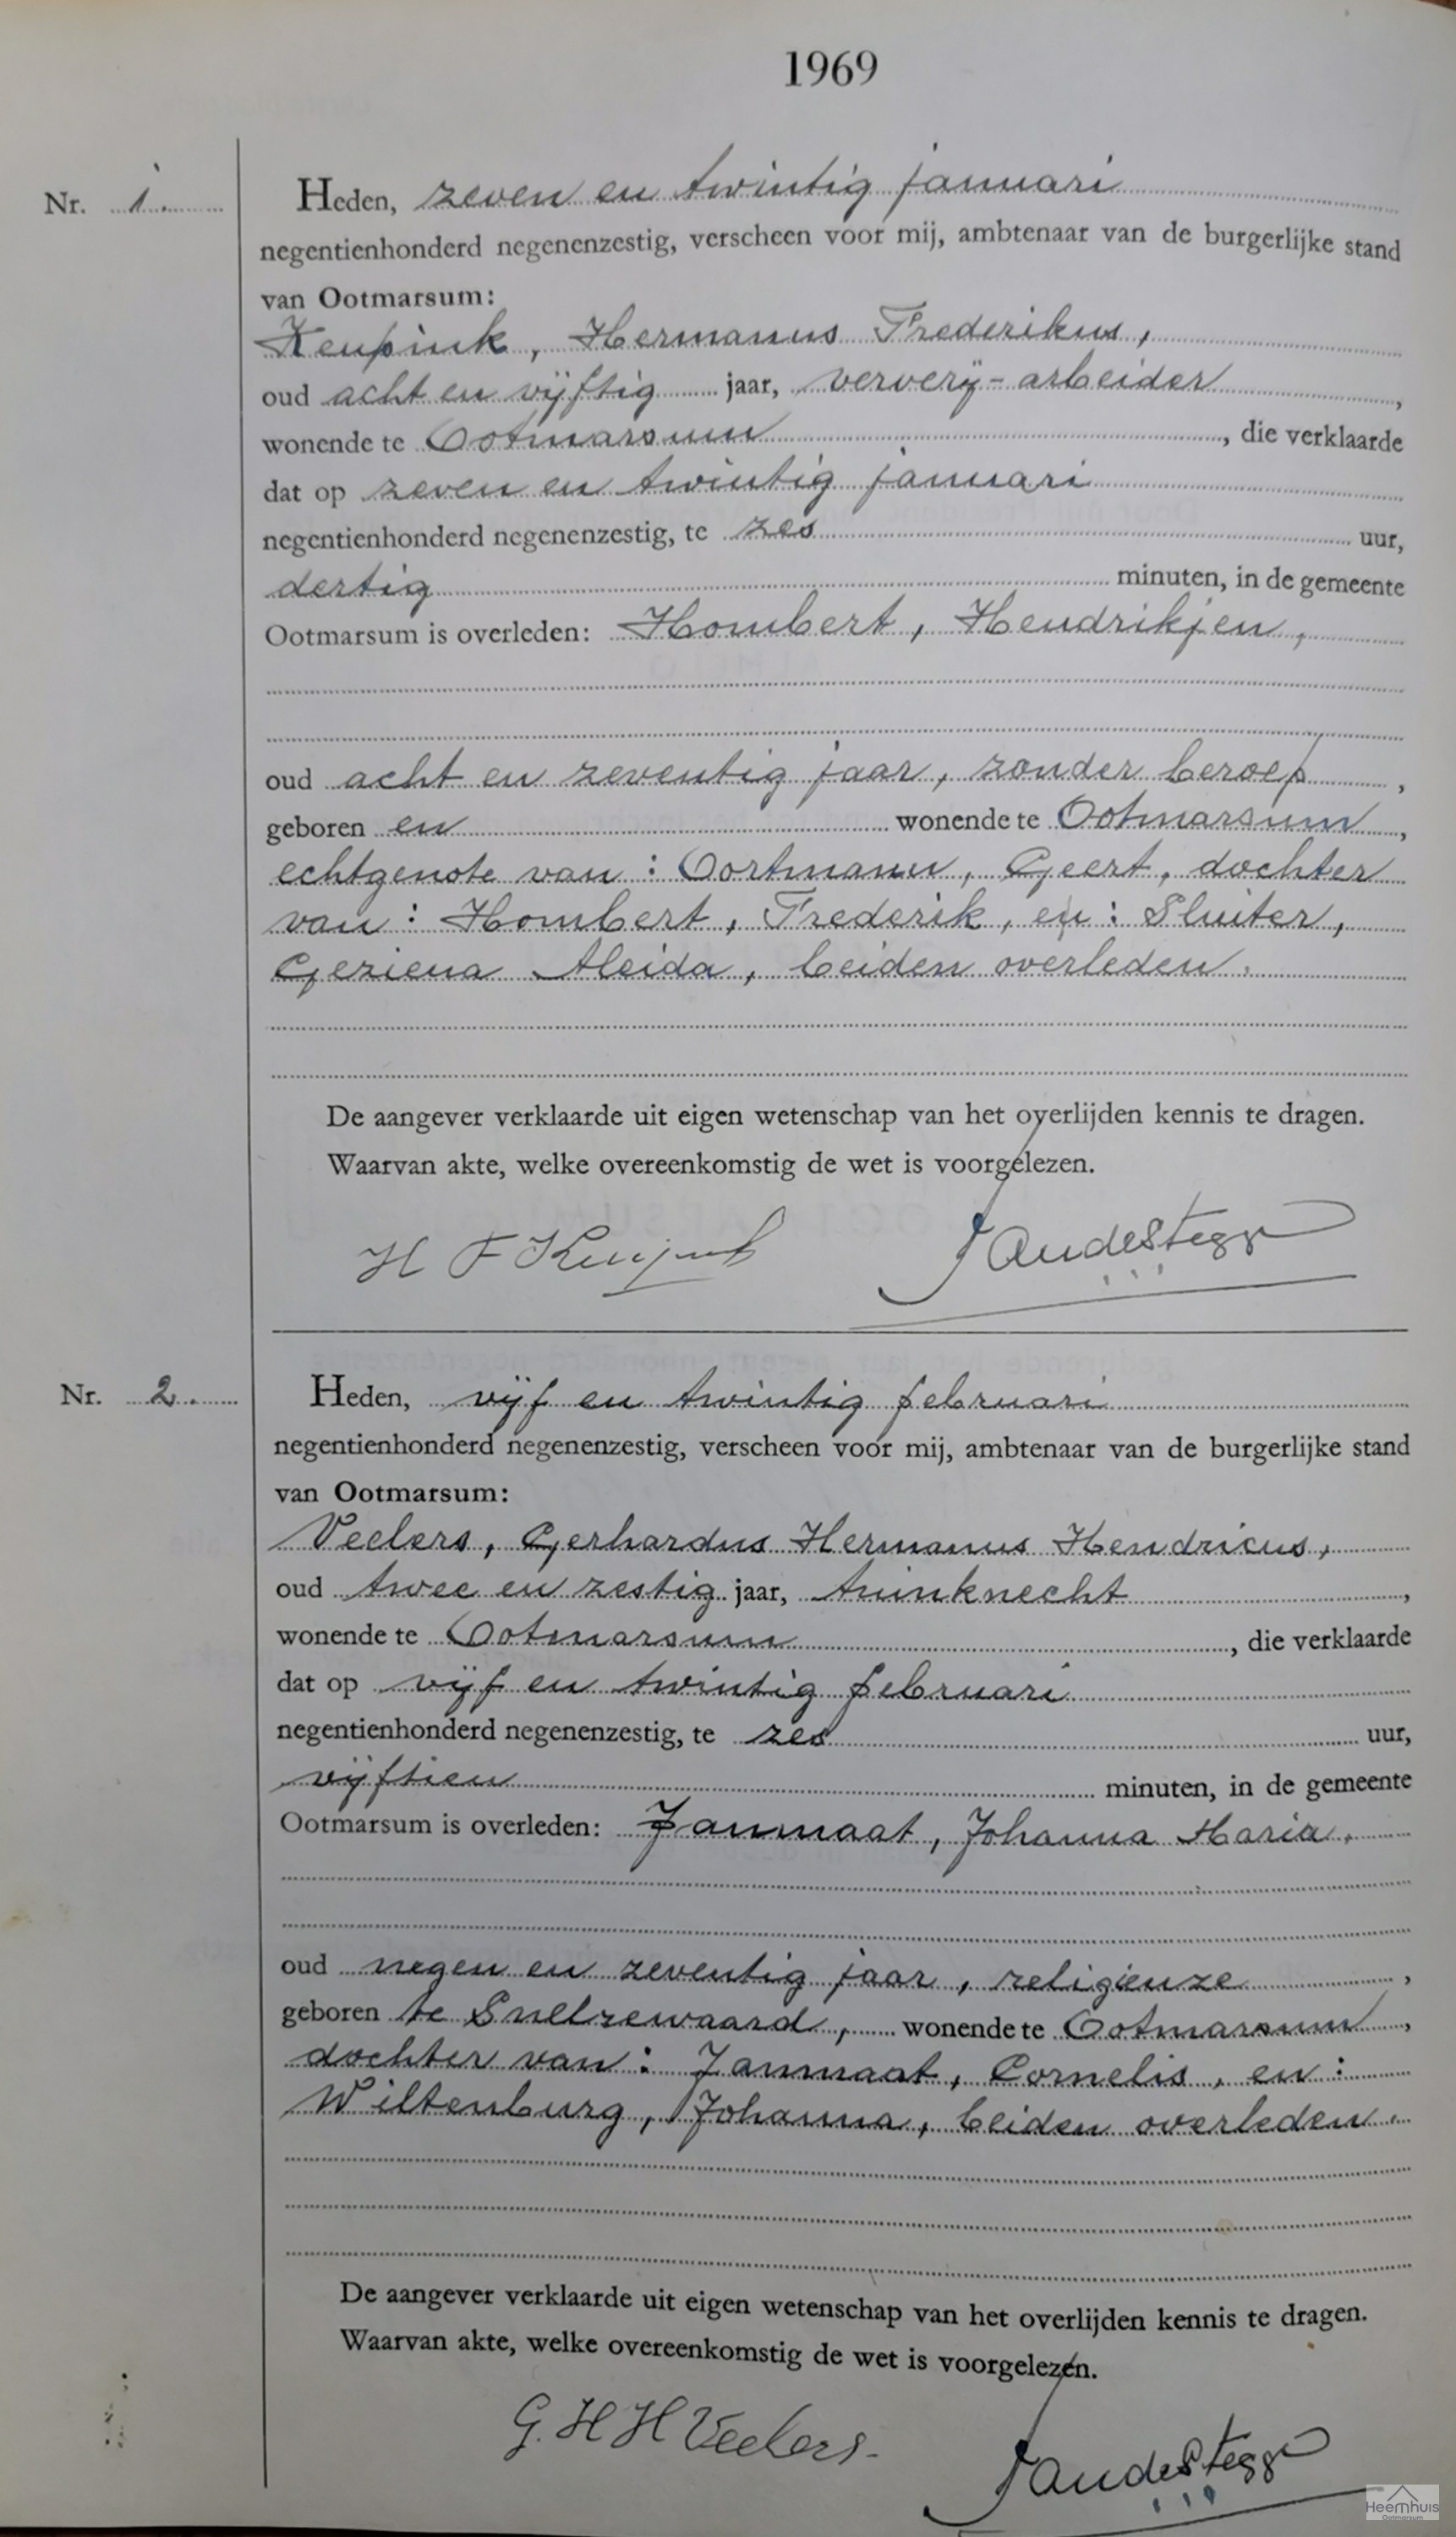 1969
Nr. 1.
Heden, zeven en twintig januari
negentienhonderd negenenzestig, verscheen voor mij, ambtenaar van de burgerlijke stand
van Ootmarsum:
Keupink, Hermanus Frederikus,
oud acht en vijftig jaar, ververij-arbeider,
wonende te Ootmarsum, die verklaarde
dat op zeven en twintig januari
negentienhonderd negenenzestig, te zes uur,
dertig minuten, in de gemeente
Ootmarsum is overleden: Hombert, Hendrikjen,
oud acht en zeventig jaar, zonder beroep,
geboren en wonende te Ootmarsum,
echtgenote van: Oortmann, Geert, dochter
van: Hombert, Frederik, en: Sluiter,
Geziena Aleida, beiden overleden.
De aangever verklaarde uit eigen wetenschap van het overlijden kennis te dragen.
Waarvan akte, welke overeenkomstig de wet is voorgelezen.
H F Keupink
Nr. 2.
Heden, vijf en twintig februari
negentienhonderd negenenzestig, verscheen voor mij, ambtenaar van de burgerlijke stand
van Ootmarsum:
Veelers, Gerhardus Hermanus Hendricus,
oud twee en zestig jaar, tuinknecht,
wonende te Ootmarsum, die verklaarde
dat op vijf en twintig februari
negentienhonderd negenenzestig, te zes uur,
vijftien minuten, in de gemeente
Ootmarsum is overleden: Janmaat, Johanna Maria,
oud negen en zeventig jaar, religieuze,
geboren te Snelrewaard, wonende te Ootmarsum,
dochter van: Janmaat, Cornelis, en:
Wiltenburg, Johanna, beiden overleden.
De aangever verklaarde uit eigen wetenschap van het overlijden kennis te dragen.
Waarvan akte, welke overeenkomstig de wet is voorgelezen.
G. H H Veelers.
Heemhuis
Ootmarsum